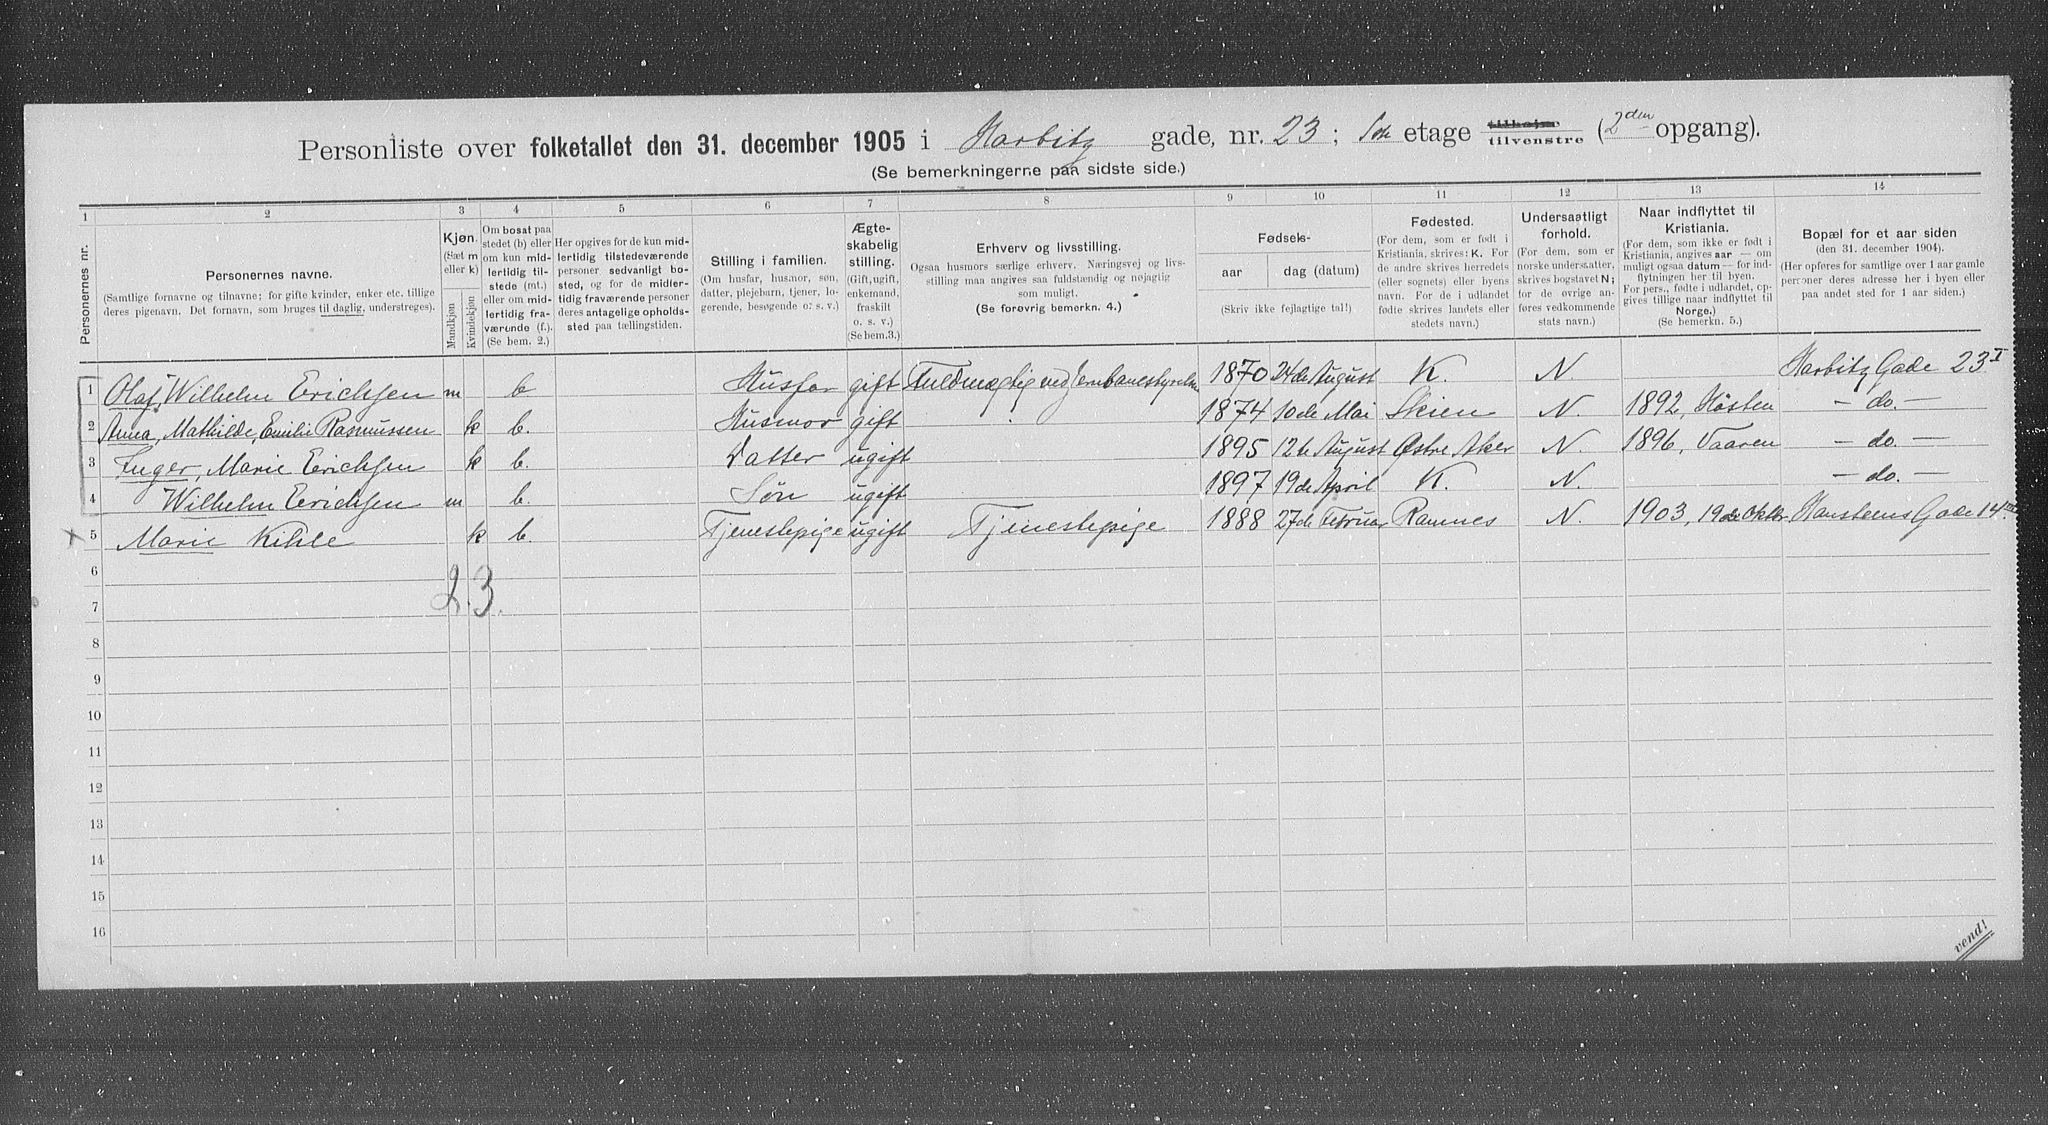 Personliste over folketallet den 31. december 1905 i Harbitz gade, nr. 23; 1ste etage tilhøjre tilvenstre (2den opgang).
(Se bemerkningerne paa sidste side.)
1 2 3 4 5 6 7 8 9 10 11 12 13 14
Personernes nr.
Personernes navne.
(Samtlige fornavne og tilnavne; for gifte kvinder, enker etc. tillige
deres pigenavn. Det fornavn, som bruges til daglig, understreges).
Kjøn.
(Sæt m
eller k)
Mandkjøn
Kvindekjøn
Om bosat paa
stedet (b) eller
om kun mid-
lertidig til-
stede (mt.)
eller om mid-
lertidig fra-
værende (f.).
(Se bem. 2.)
Her opgives for de kun mid-
lertidig tilstedeværende
personer sedvanligt bo-
sted, og for de midler-
tidig fraværende personer
deres antagelige opholds-
sted paa tællingstiden.
Stilling i familien.
(Om husfar, husmor, søn,
datter, plejebarn, tjener, lo-
gerende, besøgende o. s. v.)
Ægte-
skabelig
stilling.
(Gift, ugift,
enkemand,
fraskilt
o. s. v.)
(Se bem.3.)
Erhverv og livsstilling.
Ogsaa husmors særlige erhverv. Næringsvej og livs-
stilling maa angives saa fuldstændig og nøjagtig
som muligt.
(Se forøvrig bemerkn. 4.)
Fødsels-
aar dag (datum)
(Skriv ikke fejlagtige tal!)
Fødested.
(For dem, som er født i
Kristiania, skrives: K. For
de andre skrives herredets
(eller sognets) eller byens
navn. For de i udlandet
fødte skrives landets eller
stedets navn.)
Undersaatligt
forhold.
(For dem, som er
norske undersaatter,
skrives bogstavet N;
for de øvrige an-
føres vedkommende
stats navn.)
Naar indflyttet til
Kristiania.
(For dem, som ikke er født i
Kristiania, angives aar — om
muligt ogsaa datum — for ind-
flytningen her til byen.
For pers., fødte i udlandet, op-
gives tillige naar indflyttet til
Norge.)
(Se bemerkn. 5.)
Bopæl for et aar siden
(den 31. december 1904).
(Her opføres for samtlige over 1 aar gamle
personer deres adresse her i byen eller
paa andet sted for 1 aar siden.)
1 Olaf Wilhelm Erichsen m b Husfar gift Fuldmægtig ved Jernbanestyrelsen 1870 24de August K. N. Harbitz Gade 23 I
2 Anna, Mathilde, Emilie Rasmussen k b. Husmor gift 1874 10de Mai Skien N. 1892, Høsten — do. —
3 Inger, Marie Erichsen k b. Datter ugift 1895 12te August Østre Aker N. 1896, Vaaren — do. —
4 Wilhelm Erichsen m b. Søn ugift 1897 19de April K. N. — do. —
x 5 Marie Kihle k b. Tjenestepige ugift Tjenestepige 1888 27de Februar Ramnes N. 1903, 19de Oktbr. Hansteens Gade 14 III
6
2. 3.
7
8
9
10
11
12
13
14
15
16
vend!